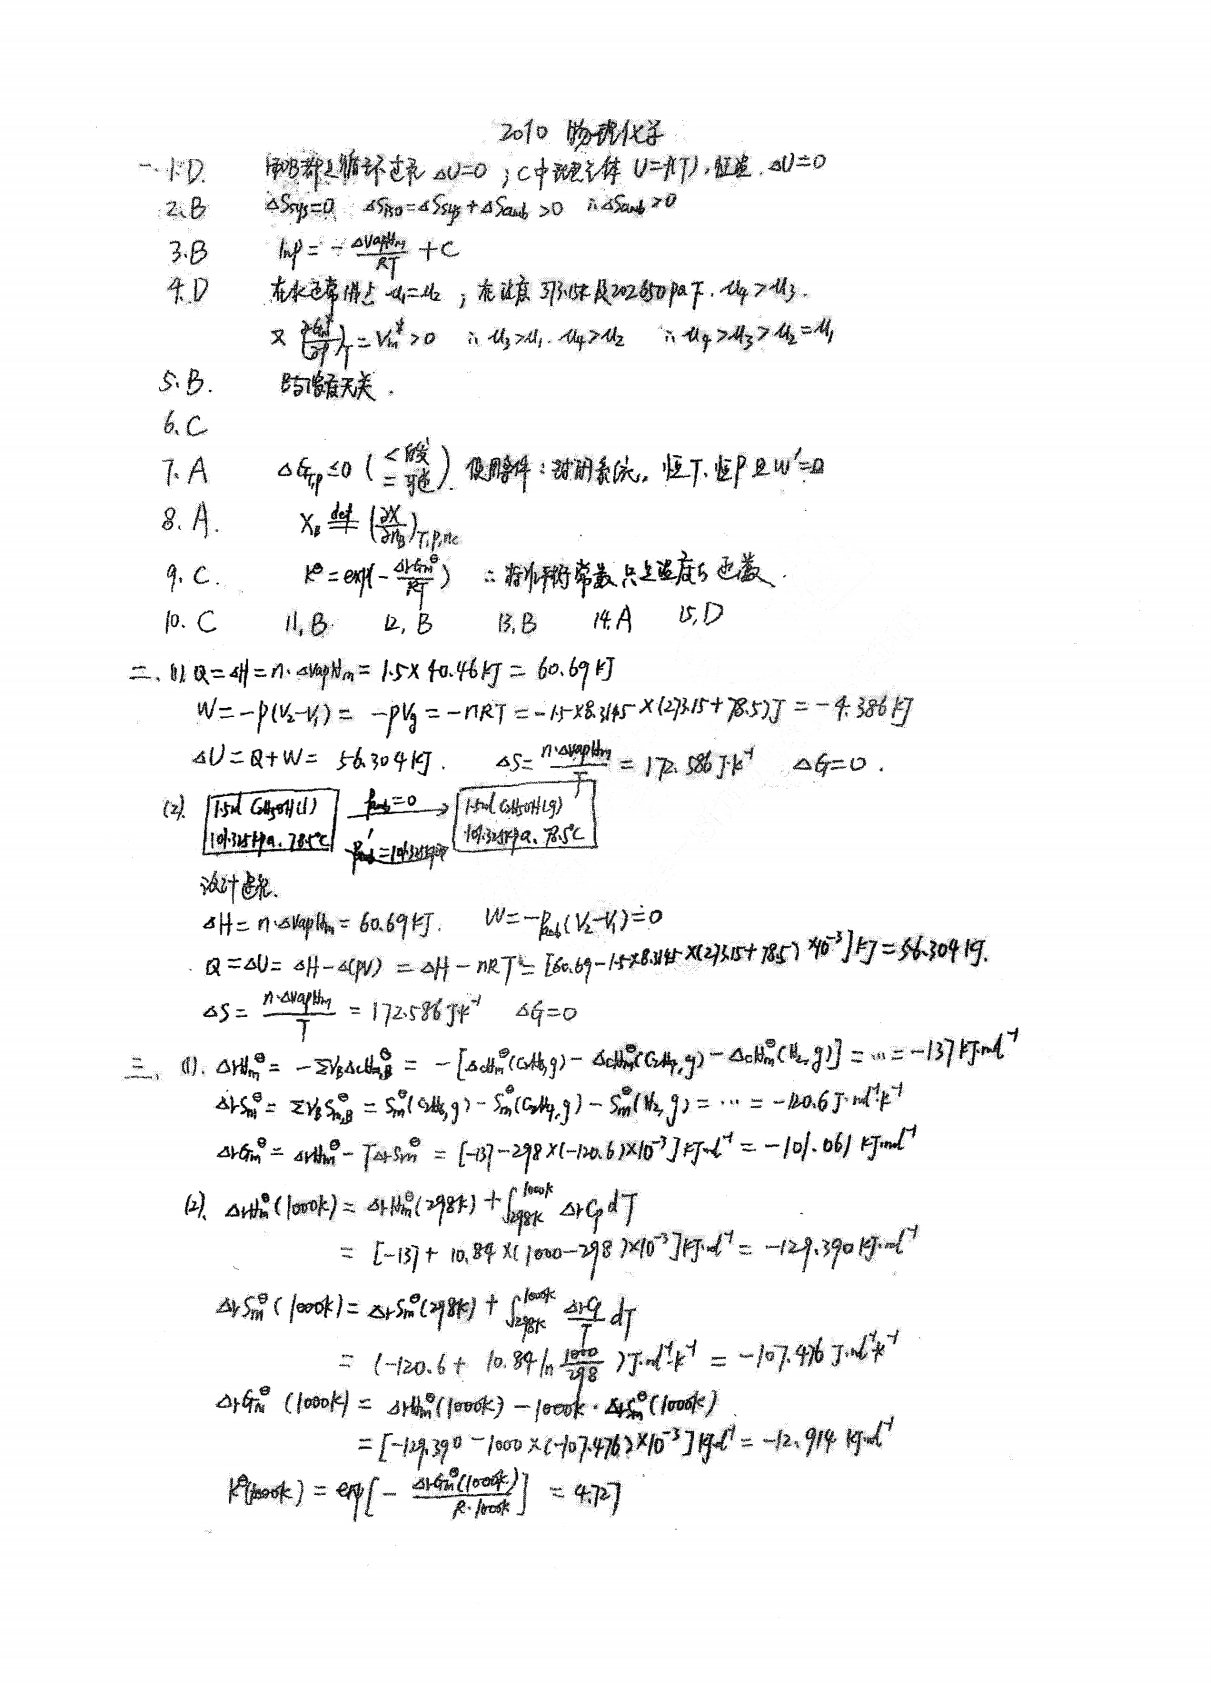 2010 物理化学
一、1.D. A和B都是循环过程 ΔU=0 ; C中理想气体 U=f(T), 恒温. ΔU=0
2.B ΔSsys=0 ΔSiso=ΔSsys+ΔSamb>0 ∴ΔSamb>0
3.B lnp = -ΔvapHm/RT + C
4.D 在水正常沸点 μ1=μ2 ; 在温度373.15K及202650pa下. μ4>μ3.
又 (∂Gm*/∂p)T = Vm*>0 ∴ μ3>μ1. μ4>μ2 ∴ μ4>μ3>μ2=μ1
5.B. 与浓度无关.
6.C
7.A ΔGT,p≤0 (<自发 =可逆) 使用条件: 封闭系统, 恒T.恒P且W'=0
8.A. XB def (∂X/∂nB)T,p,nc
9.C. K⊖=exp(-ΔrGm⊖/RT) ∴ 标准平衡常数只是温度的函数.
10.C 11,B 12,B 13,B 14.A 15,D
二、(1). Q=ΔH=n·ΔvapHm= 1.5×40.46kJ = 60.69kJ
W=-p(V2-V1) = -pVg = -nRT = -1.5×8.3145×(273.15+78.5)J = -4.386kJ
ΔU=Q+W= 56.304kJ. ΔS=n·ΔvapHm/T = 172.586J·k⁻¹ ΔG=0.
(2). 1.5mol C2H5OH(l) Pamb=0 1.5mol C2H5OH(g)
101.325kPa. 78.5℃ Pamb'=101.325kPa 101.325kPa. 78.5℃
设计过程.
ΔH=n·ΔvapHm=60.69kJ. W=-Pamb(V2-V1)=0
Q=ΔU=ΔH-Δ(pV) = ΔH-nRT = [60.69-1.5×8.3145×(273.15+78.5)×10⁻³]kJ=56.304kJ.
ΔS= n·ΔvapHm/T = 172.586J·k⁻¹ ΔG=0
三、(1). ΔrHm⊖= -ΣνBΔcHm,B⊖ = -[ΔcHm⊖(C2H6,g)-ΔcHm⊖(C2H4,g)-ΔcHm⊖(H2,g)] = … = -137kJ·mol⁻¹
ΔrSm⊖= ΣνBSm,B⊖ = Sm⊖(C2H6,g)-Sm⊖(C2H4,g)-Sm⊖(H2,g) = … = -120.6J·mol⁻¹·k⁻¹
ΔrGm⊖= ΔrHm⊖-TΔrSm⊖ = [-137-298×(-120.6)×10⁻³]kJ·mol⁻¹ = -101.061kJ·mol⁻¹
(2). ΔrHm⊖(1000k) = ΔrHm⊖(298k) + ∫298k 1000k ΔrCp dT
= [-137+10.84×(1000-298)×10⁻³]kJ·mol⁻¹ = -129.390kJ·mol⁻¹
ΔrSm⊖(1000k) = ΔrSm⊖(298k) + ∫298k 1000k ΔrCp/T dT
= (-120.6+10.84ln 1000/298)J·mol⁻¹·k⁻¹ = -107.476J·mol⁻¹·k⁻¹
ΔrGm⊖(1000k) = ΔrHm⊖(1000k)-1000k·ΔrSm⊖(1000k)
= [-129.390-1000×(-107.476)×10⁻³]kJ·mol⁻¹ = -12.914kJ·mol⁻¹
K⊖(1000k) = exp[-ΔrGm⊖(1000k)/R·1000k] = 4.727